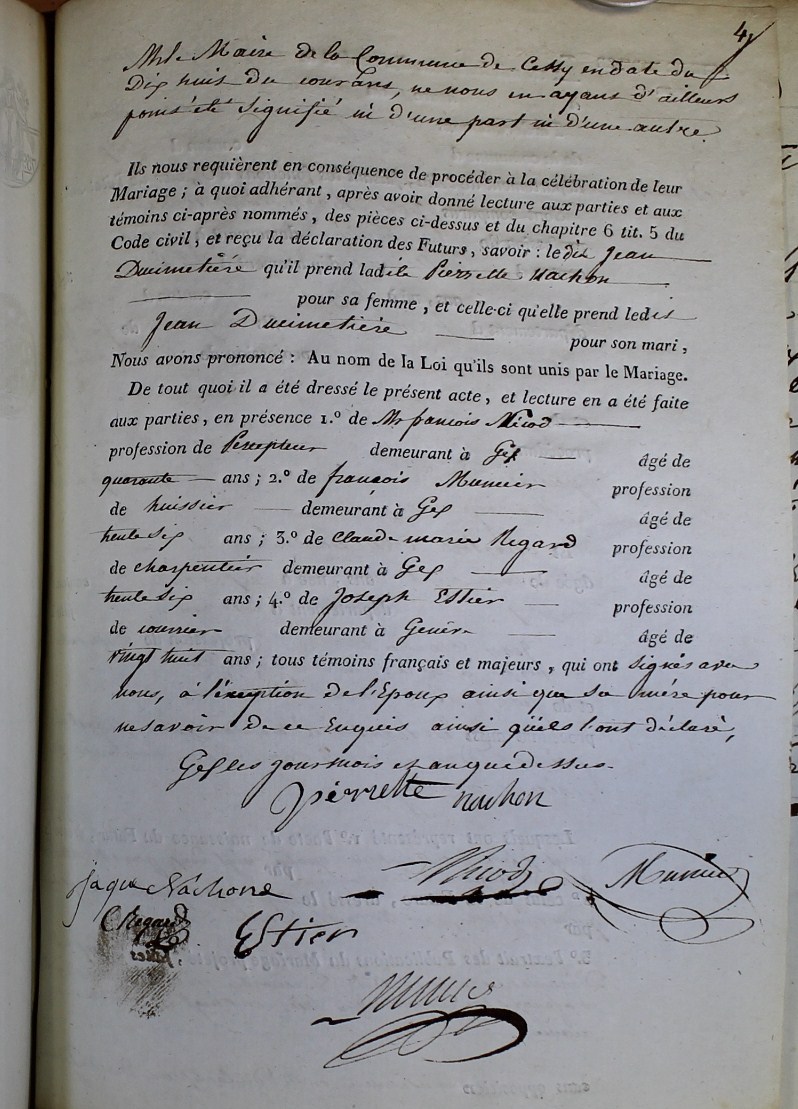 4
Mr le Maire de la Commune de Cessy en date du
Dix huit du courant, ne nous en ayant d'ailleurs
point été signifié ni d'une part ni d'une autre.
Ils nous requièrent en conséquence de procéder à la célébration de leur
Mariage ; à quoi adhérant, après avoir donné lecture aux parties et aux
témoins ci-après nommés, des pièces ci-dessus et du chapitre 6 tit. 5 du
Code civil, et reçu la déclaration des Futurs, savoir : le dit Jean
Ducimetière qu'il prend ladite Pierrette Nachon
pour sa femme, et celle-ci qu'elle prend ledit
Jean Ducimetière pour son mari,
Nous avons prononcé : Au nom de la Loi qu'ils sont unis par le Mariage.
De tout quoi il a été dressé le présent acte, et lecture en a été faite
aux parties, en présence 1.º de Mr françois Nicod
profession de Percepteur demeurant à Gex âgé de
quarante ans ; 2.º de françois Munier profession
de huissier demeurant à Gex âgé de
trente six ans ; 3.º de Claude marie Regard profession
de charpentier demeurant à Gex âgé de
trente six ans ; 4.º de Joseph Estier profession
de courrier demeurant à Genève âgé de
vingt huit ans ; tous témoins français et majeurs, qui ont signés avec
nous, à l'éxception de l'Epoux ainsi que sa mère pour
ne savoir de ce Enquis ainsi qu'ils l'ont déclaré,
Gex les jour mois et an que dessus.
pierrette nachon
jaque Nachon
Nicod
Munier
C Regard
Estier